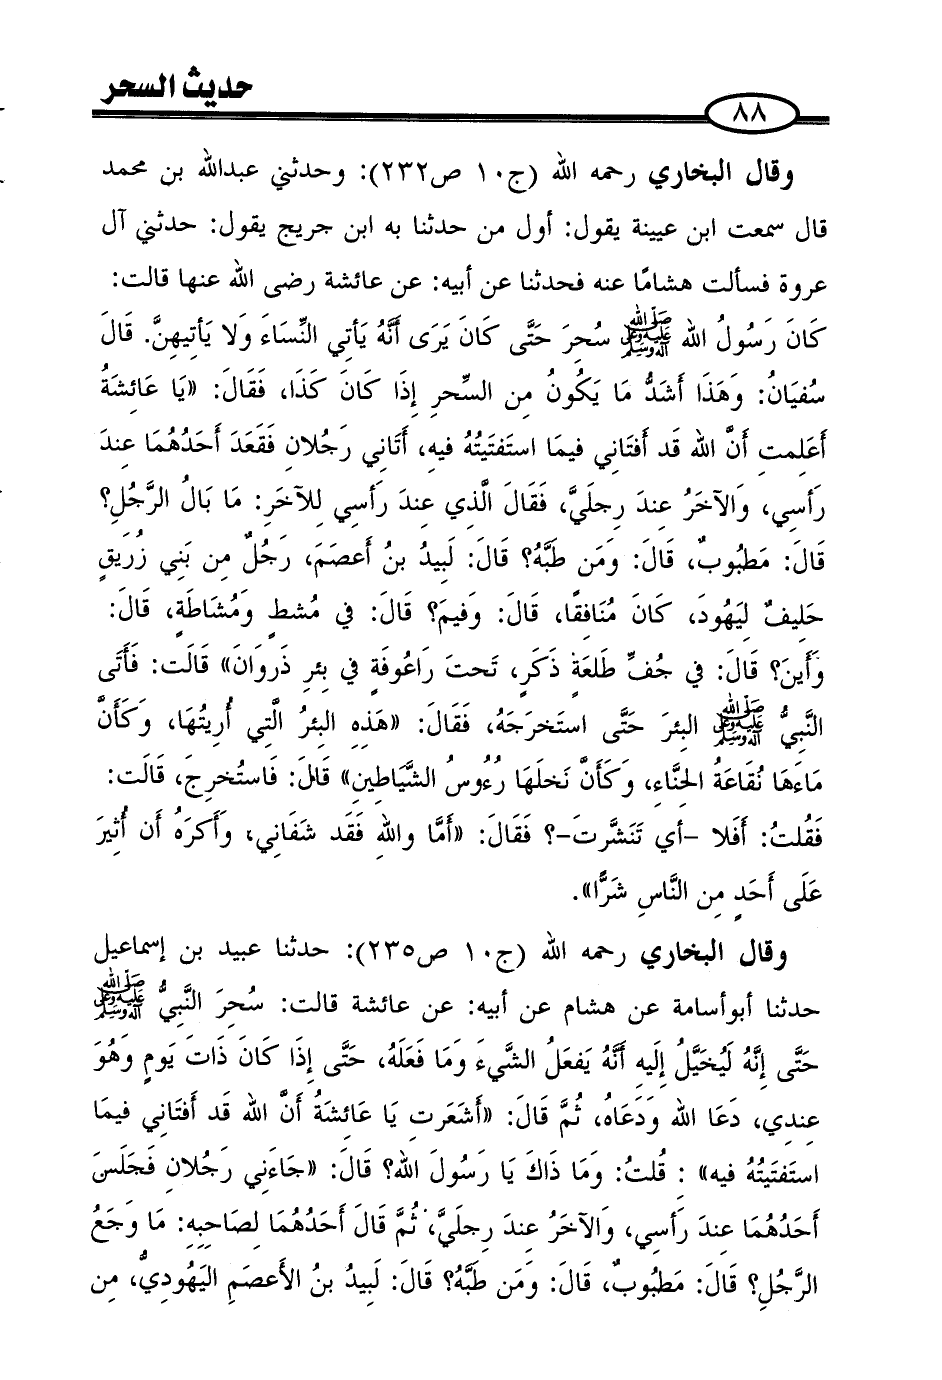 حديث السحر
٨٨
وقال البخاري رحمه الله (ج١٠ ص٢٣٢): وحدثني عبدالله بن محمد
قال سمعت ابن عيينة يقول: أول من حدثنا به ابن جريج يقول: حدثني آل
عروة فسألت هشامًا عنه فحدثنا عن أبيه: عن عائشة رضى الله عنها قالت:
كَانَ رَسُولُ الله صَلَّى اللهُ عَلَيْهِ وَآلِهِ وَسَلَّمَ سُحِرَ حَتَّى كَانَ يَرَى أَنَّهُ يَأتي النِّسَاءَ وَلا يَأتيهِنَّ. قَالَ
سُفيَانُ: وَهَذَا أَشَدُّ مَا يَكُونُ مِن السِّحرِ إِذَا كَانَ كَذَا، فَقَالَ: «يَا عَائشَةُ
أَعَلِمتِ أَنَّ الله قَد أَفتَاني فيمَا استَفتَيتُهُ فيه، أَتَاني رَجُلان فَقَعَدَ أَحَدُهُمَا عِندَ
رَأسِي، وَالآخَرُ عِندَ رِجلَيَّ، فَقَالَ الَّذي عِندَ رَأسي لِلآخَرِ: مَا بَالُ الرَّجُلِ؟
قَالَ: مَطبُوبٌ، قَالَ: وَمَن طَبَّهُ؟ قَالَ: لَبيدُ بنُ أَعصَمَ، رَجُلٌ مِن بَنِي زُرَيقٍ
حَليفٌ ليَهُودَ، كَانَ مُنَافقًا، قَالَ: وَفيمَ؟ قَالَ: في مُشطٍ وَمُشَاطَةٍ، قَالَ:
وَأَينَ؟ قَالَ: في جُفِّ طَلعَةٍ ذَكَرٍ، تَحتَ رَاعُوفَةٍ في بئرِ ذَروَانَ» قَالَت: فَأَتَى
النَّبيُّ صَلَّى اللهُ عَلَيْهِ وَآلِهِ وَسَلَّمَ البئرَ حَتَّى استَخرَجَهُ، فَقَالَ: «هَذِهِ البئرُ الَّتِي أُرِيتُهَا، وَكَأَنَّ
مَاءَهَا نُقَاعَةُ الحِنَّاءِ، وَكَأَنَّ نَخلَهَا رُءُوسُ الشَّيَاطِينِ» قَالَ: فَاستُخرِجَ، قَالَت:
فَقُلتُ: أَفَلا -أي تَنَشَّرتَ-؟ فَقَالَ: «أَمَّا واللهِ فَقَد شَفَانِي، وَأَكرَهُ أَن أُثيرَ
عَلَى أَحَدٍ مِن النَّاسِ شَرًّا».
وقال البخاري رحمه الله (ج١٠ ص٢٣٥): حدثنا عبيد بن إسماعيل
حدثنا أبوأسامة عن هشام عن أبيه: عن عائشة قالت: سُحِرَ النَّبيُّ صَلَّى اللهُ عَلَيْهِ وَآلِهِ وَسَلَّمَ
حَتَّى إِنَّهُ لَيُخَيَّلُ إِلَيه أَنَّهُ يَفعَلُ الشَّيءَ وَمَا فَعَلَهُ، حَتَّى إِذَا كَانَ ذَاتَ يَومٍ وَهُوَ
عِندِي، دَعَا الله وَدَعَاهُ، ثُمَّ قَالَ: «أَشَعَرتِ يَا عَائشَةُ أَنَّ الله قَد أَفتَاني فيمَا
استَفتَيتُهُ فيه» : قُلتُ: وَمَا ذَاكَ يَا رَسُولَ الله؟ قَالَ: «جَاءَني رَجُلان فَجَلَسَ
أَحَدُهُمَا عندَ رَأسي، وَالآخَرُ عندَ رجلَيَّ، ثُمَّ قَالَ أَحَدُهُمَا لصَاحبِهِ: مَا وَجَعُ
الرَّجُلِ؟ قَالَ: مَطبُوبٌ، قَالَ: وَمَن طَبَّهُ؟ قَالَ: لَبيدُ بنُ الأَعصَمِ اليَهُوديُّ، مِن